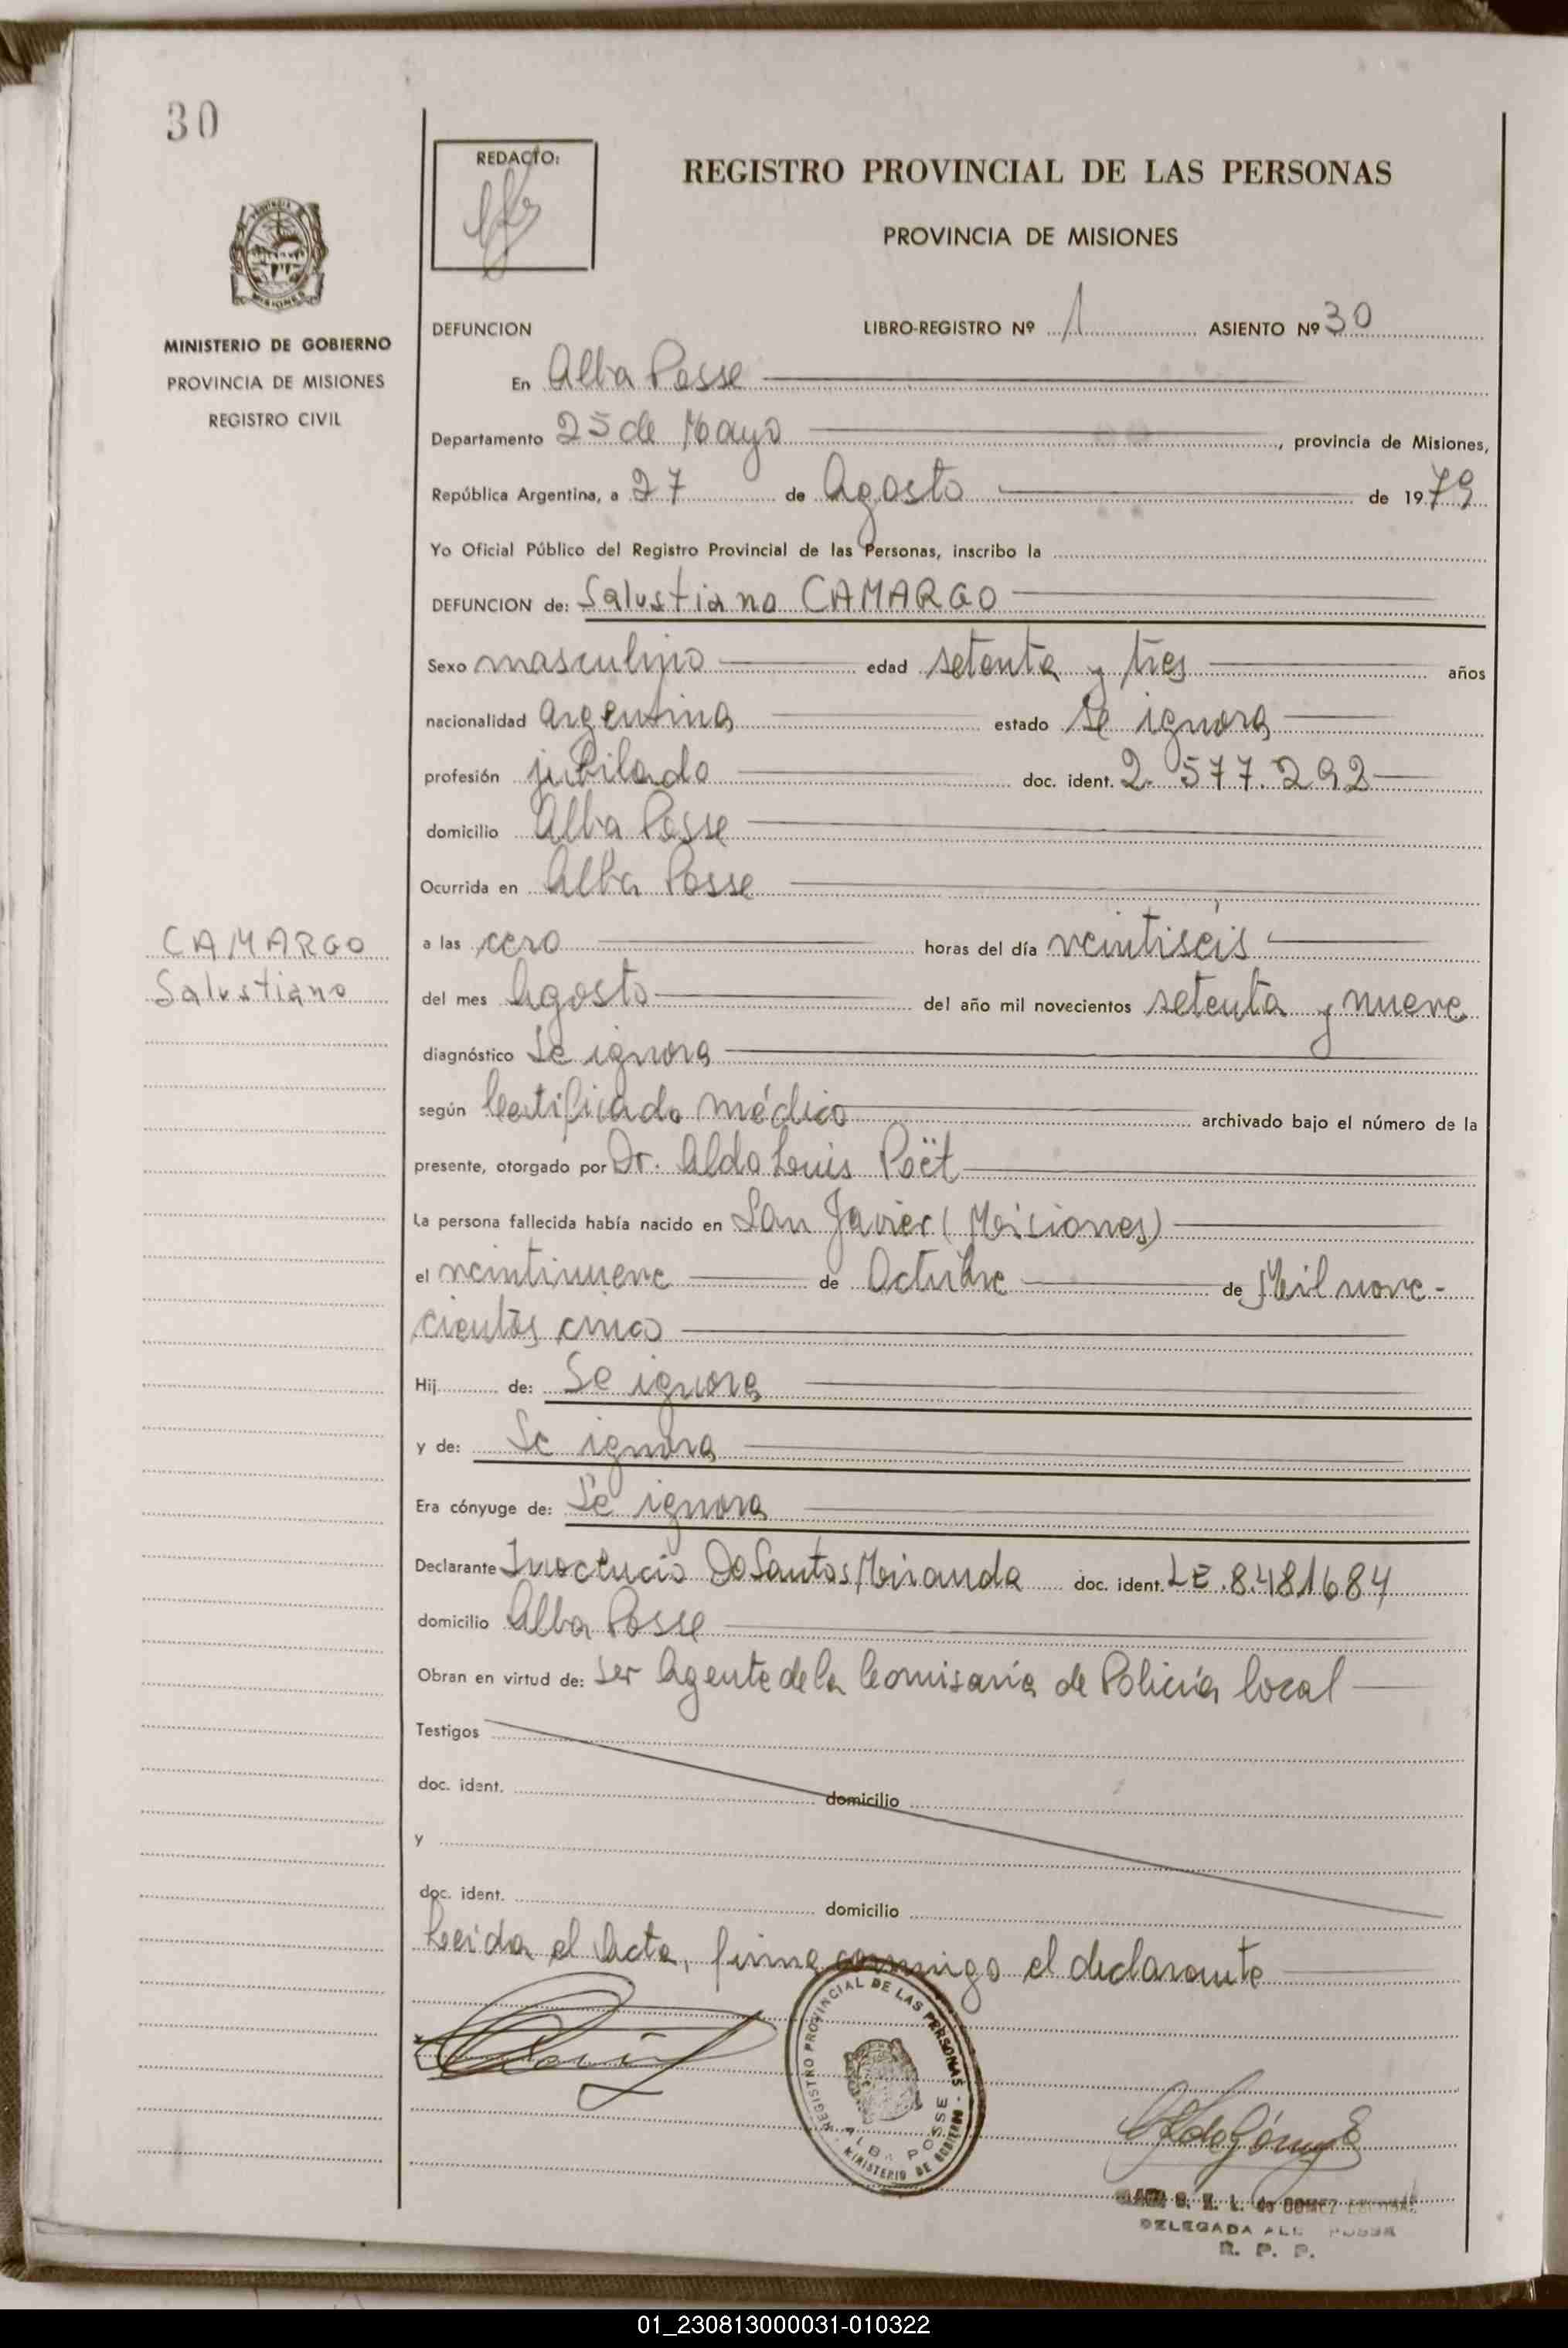 30
REDACTO:
REGISTRO PROVINCIAL DE LAS PERSONAS
PROVINCIA DE MISIONES
PROVINCIA
MISIONES
MINISTERIO DE GOBIERNO
PROVINCIA DE MISIONES
REGISTRO CIVIL
DEFUNCION LIBRO-REGISTRO Nº 1 ASIENTO Nº 30
En Alba Posse
Departamento 25 de Mayo, provincia de Misiones,
República Argentina, a 27 de Agosto de 1979
Yo Oficial Público del Registro Provincial de las Personas, inscribo la
DEFUNCION de: Salustiano CAMARGO
Sexo masculino edad setenta y tres años
nacionalidad argentina estado se ignora
profesión jubilado doc. ident. 2.577.292
domicilio Alba Posse
Ocurrida en Alba Posse
CAMARGO
Salustiano
a las cero horas del día veintiséis
del mes Agosto del año mil novecientos setenta y nueve
diagnóstico Se ignora
según Certificado médico archivado bajo el número de la
presente, otorgado por Dr. Aldo Luis Poët
La persona fallecida había nacido en San Javier (Misiones)
el veintinueve de Octubre de Mil nove-
cientos cinco
Hij de: Se ignora
y de: Se ignora
Era cónyuge de: Se ignora
Declarante Inocencio Do Santos Miranda doc. ident. LE 8.481684
domicilio Alba Posse
Obran en virtud de: ser Agente de la Comisaría de Policía local
Testigos
doc. ident. domicilio
y
doc. ident. domicilio
Leida el Acta, firma conmigo el declarante
REGISTRO PROVINCIAL DE LAS PERSONAS
ALBA POSSE
MINISTERIO DE GOBIERNO
de GOMEZ
DELEGADA ALBA POSSE
R. P. P.
01_230813000031-010322